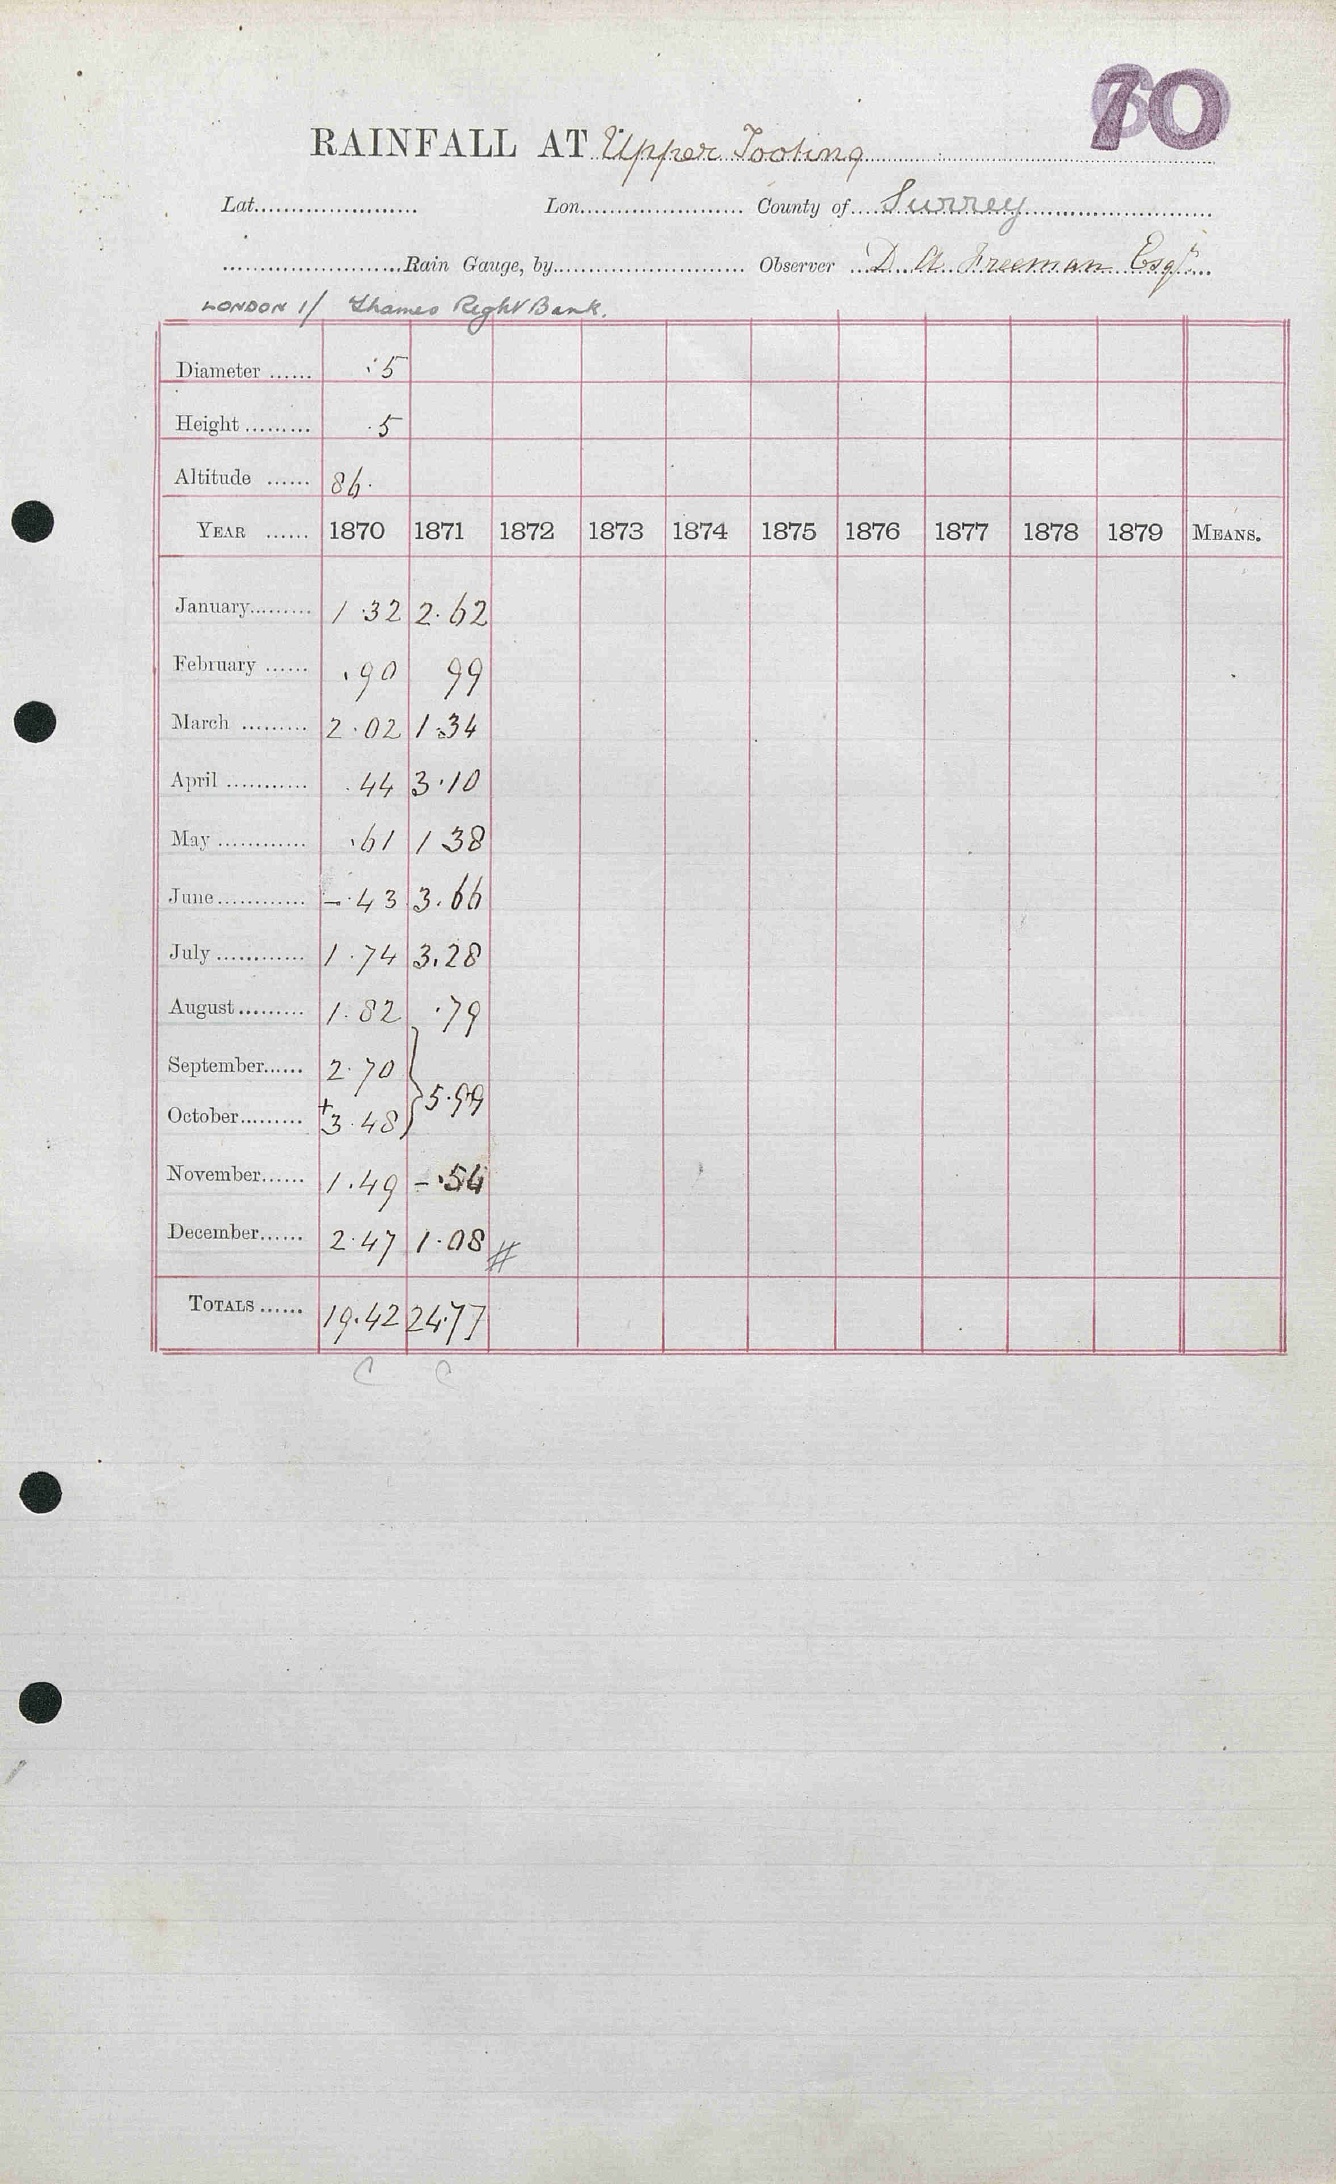 70
RAINFALL AT Upper Tooting
Lat...................... Lon....................... County of Surrey
.........................Rain Gauge, by........................... Observer D. A. Freeman Esqr
LONDON 1/ Thames Right Bank.
Diameter ...... 5
Height ......... .5
Altitude ...... 86.
YEAR ...... 1870 1871 1872 1873 1874 1875 1876 1877 1878 1879 MEANS.
January......... 1.32 2.62
February ...... .90 99
March ......... 2.02 1.34
April ............ .44 3.10
May ............ .61 1 38
June............ -.43 3.66
July ............ 1.74 3.28
August......... 1.82 .79
September...... 2.70
October......... +3.48 } 5.99
November...... 1.49 -.54
December...... 2.47 1.08 #
TOTALS ...... 19.42 24.77
C C